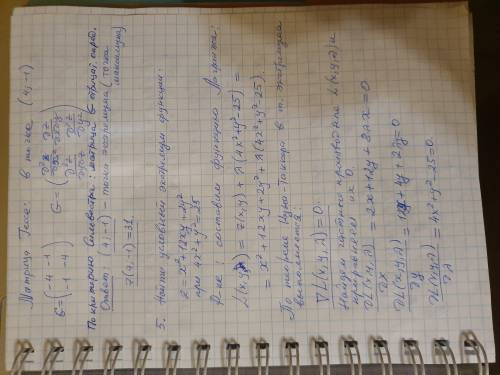 Матрица Гессе: в точке (4;-1)
G = (-4 -1
-1 -4) G = (∂²z/∂x² ∂²z/∂x∂y
∂²z/∂x∂y ∂²z/∂y²)
По критерию Сильвестра: матрица G отриц. опред.
Ответ (4;-1) - точка экстремума (точка максимума)
z(4;-1)=31
5. Найти условный экстремум функции:
z = x²+12xy+2y²
при 4x²+y²=25
Р-ие: составим функцию Лагранжа:
L(x,y,λ) = z(x,y) + λ(4x²+y²-25) =
= x²+12xy+2y²+λ(4x²+y²-25).
По теореме Куна-Таккера в т. экстремума
выполняется:
∇L(x,y,λ)=0.
Найдём частные производные L(x,y,λ) и
приравняем их 0.
∂L(x,y,λ)/∂x = 2x+12y+8λx=0
∂L(x,y,λ)/∂y = 12x+4y+2λy=0
∂L(x,y,λ)/∂λ = 4x²+y²-25=0